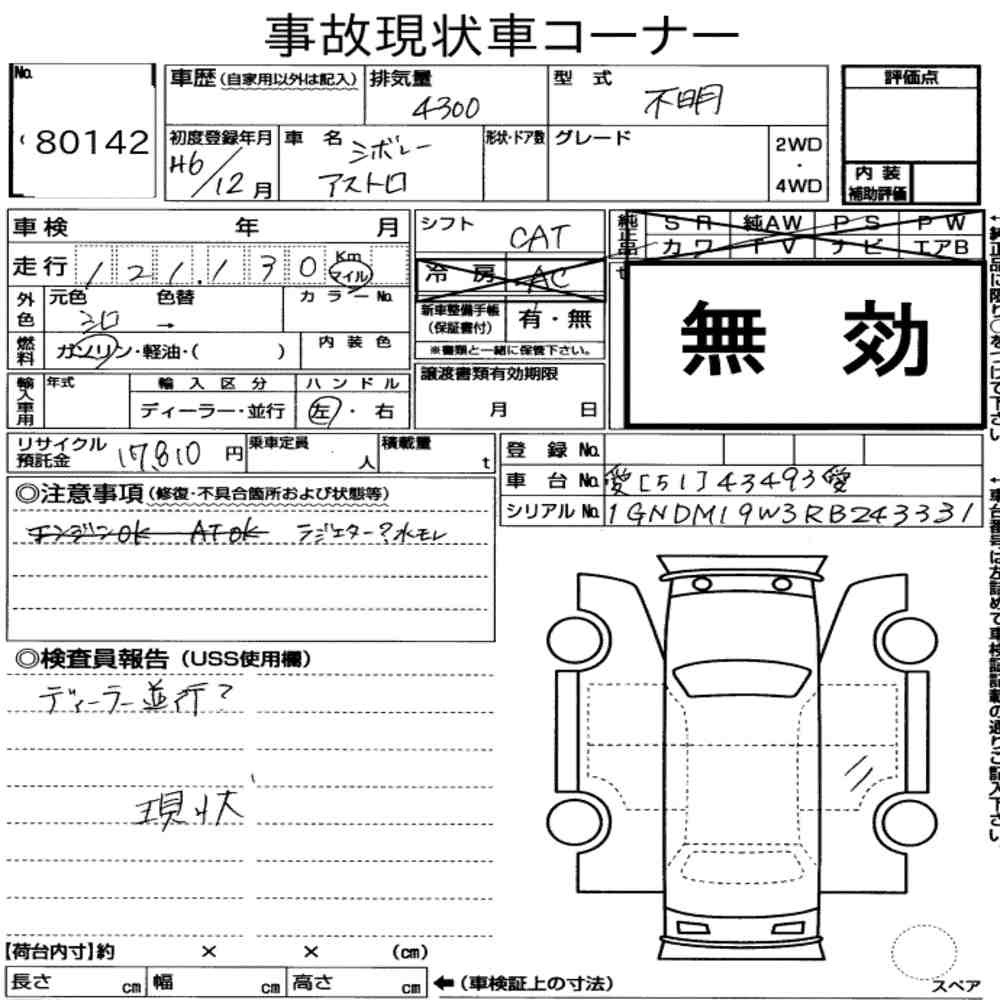 事故現状車コーナー
No. 80142
車歴(自家用以外は記入) 排気量 4300 型式 不明 評価点
初度登録年月 H6/12月 車名 シボレー アストロ 形状・ドア数 グレード 2WD・4WD
内装補助評価
車検 年 月 シフト CAT 純正品 SR 純AW PS PW
カワ TV ナビ エアB
走行 121,130 Km マイル 冷房 AC
外色 元色 シロ 色替 → カラーNo. 新車整備手帳(保証書付) 有・無
無効
燃料 ガソリン・軽油・( ) 内装色 ※書類と一緒に保管下さい。
輸入車用 年式 輸入区分 ハンドル 譲渡書類有効期限
ディーラー・並行 左・右 月 日
←純正品に限り○をつけて下さい
リサイクル預託金 17,810円 乗車定員 人 積載量 t 登録No.
車台No. 愛[51]43493愛
シリアルNo. 1GNDM19W3RB243331
←車台番号は左詰めで車検証記載の通りご記入下さい。
◎注意事項(修復・不具合箇所および状態等)
エンジンOK ATOK ラジエター?水モレ
◎検査員報告(USS使用欄)
ディーラー並行?
現状
【荷台内寸】約 × × (cm)
長さ cm 幅 cm 高さ cm ←(車検証上の寸法)
スペア